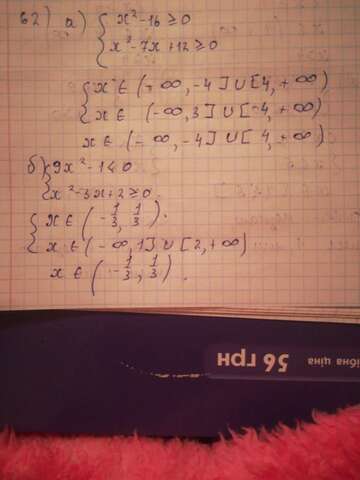 62) а) { x² - 16 ≥ 0
x² - 7x + 12 ≥ 0
{ x ∈ (- ∞, -4] ∪ [4, + ∞)
x ∈ (-∞, 3] ∪ [4, + ∞)
x ∈ (- ∞, -4] ∪ [4, + ∞)
б) { 9x² - 1 < 0
x² - 3x + 2 ≥ 0
{ x ∈ (-1/3, 1/3).
x ∈ (- ∞, 1] ∪ [2, +∞)
x ∈ (-1/3, 1/3).
ібна ціна 56 грн